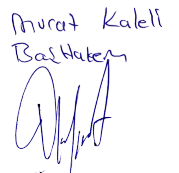 Murat Kaleli
BaşHakem